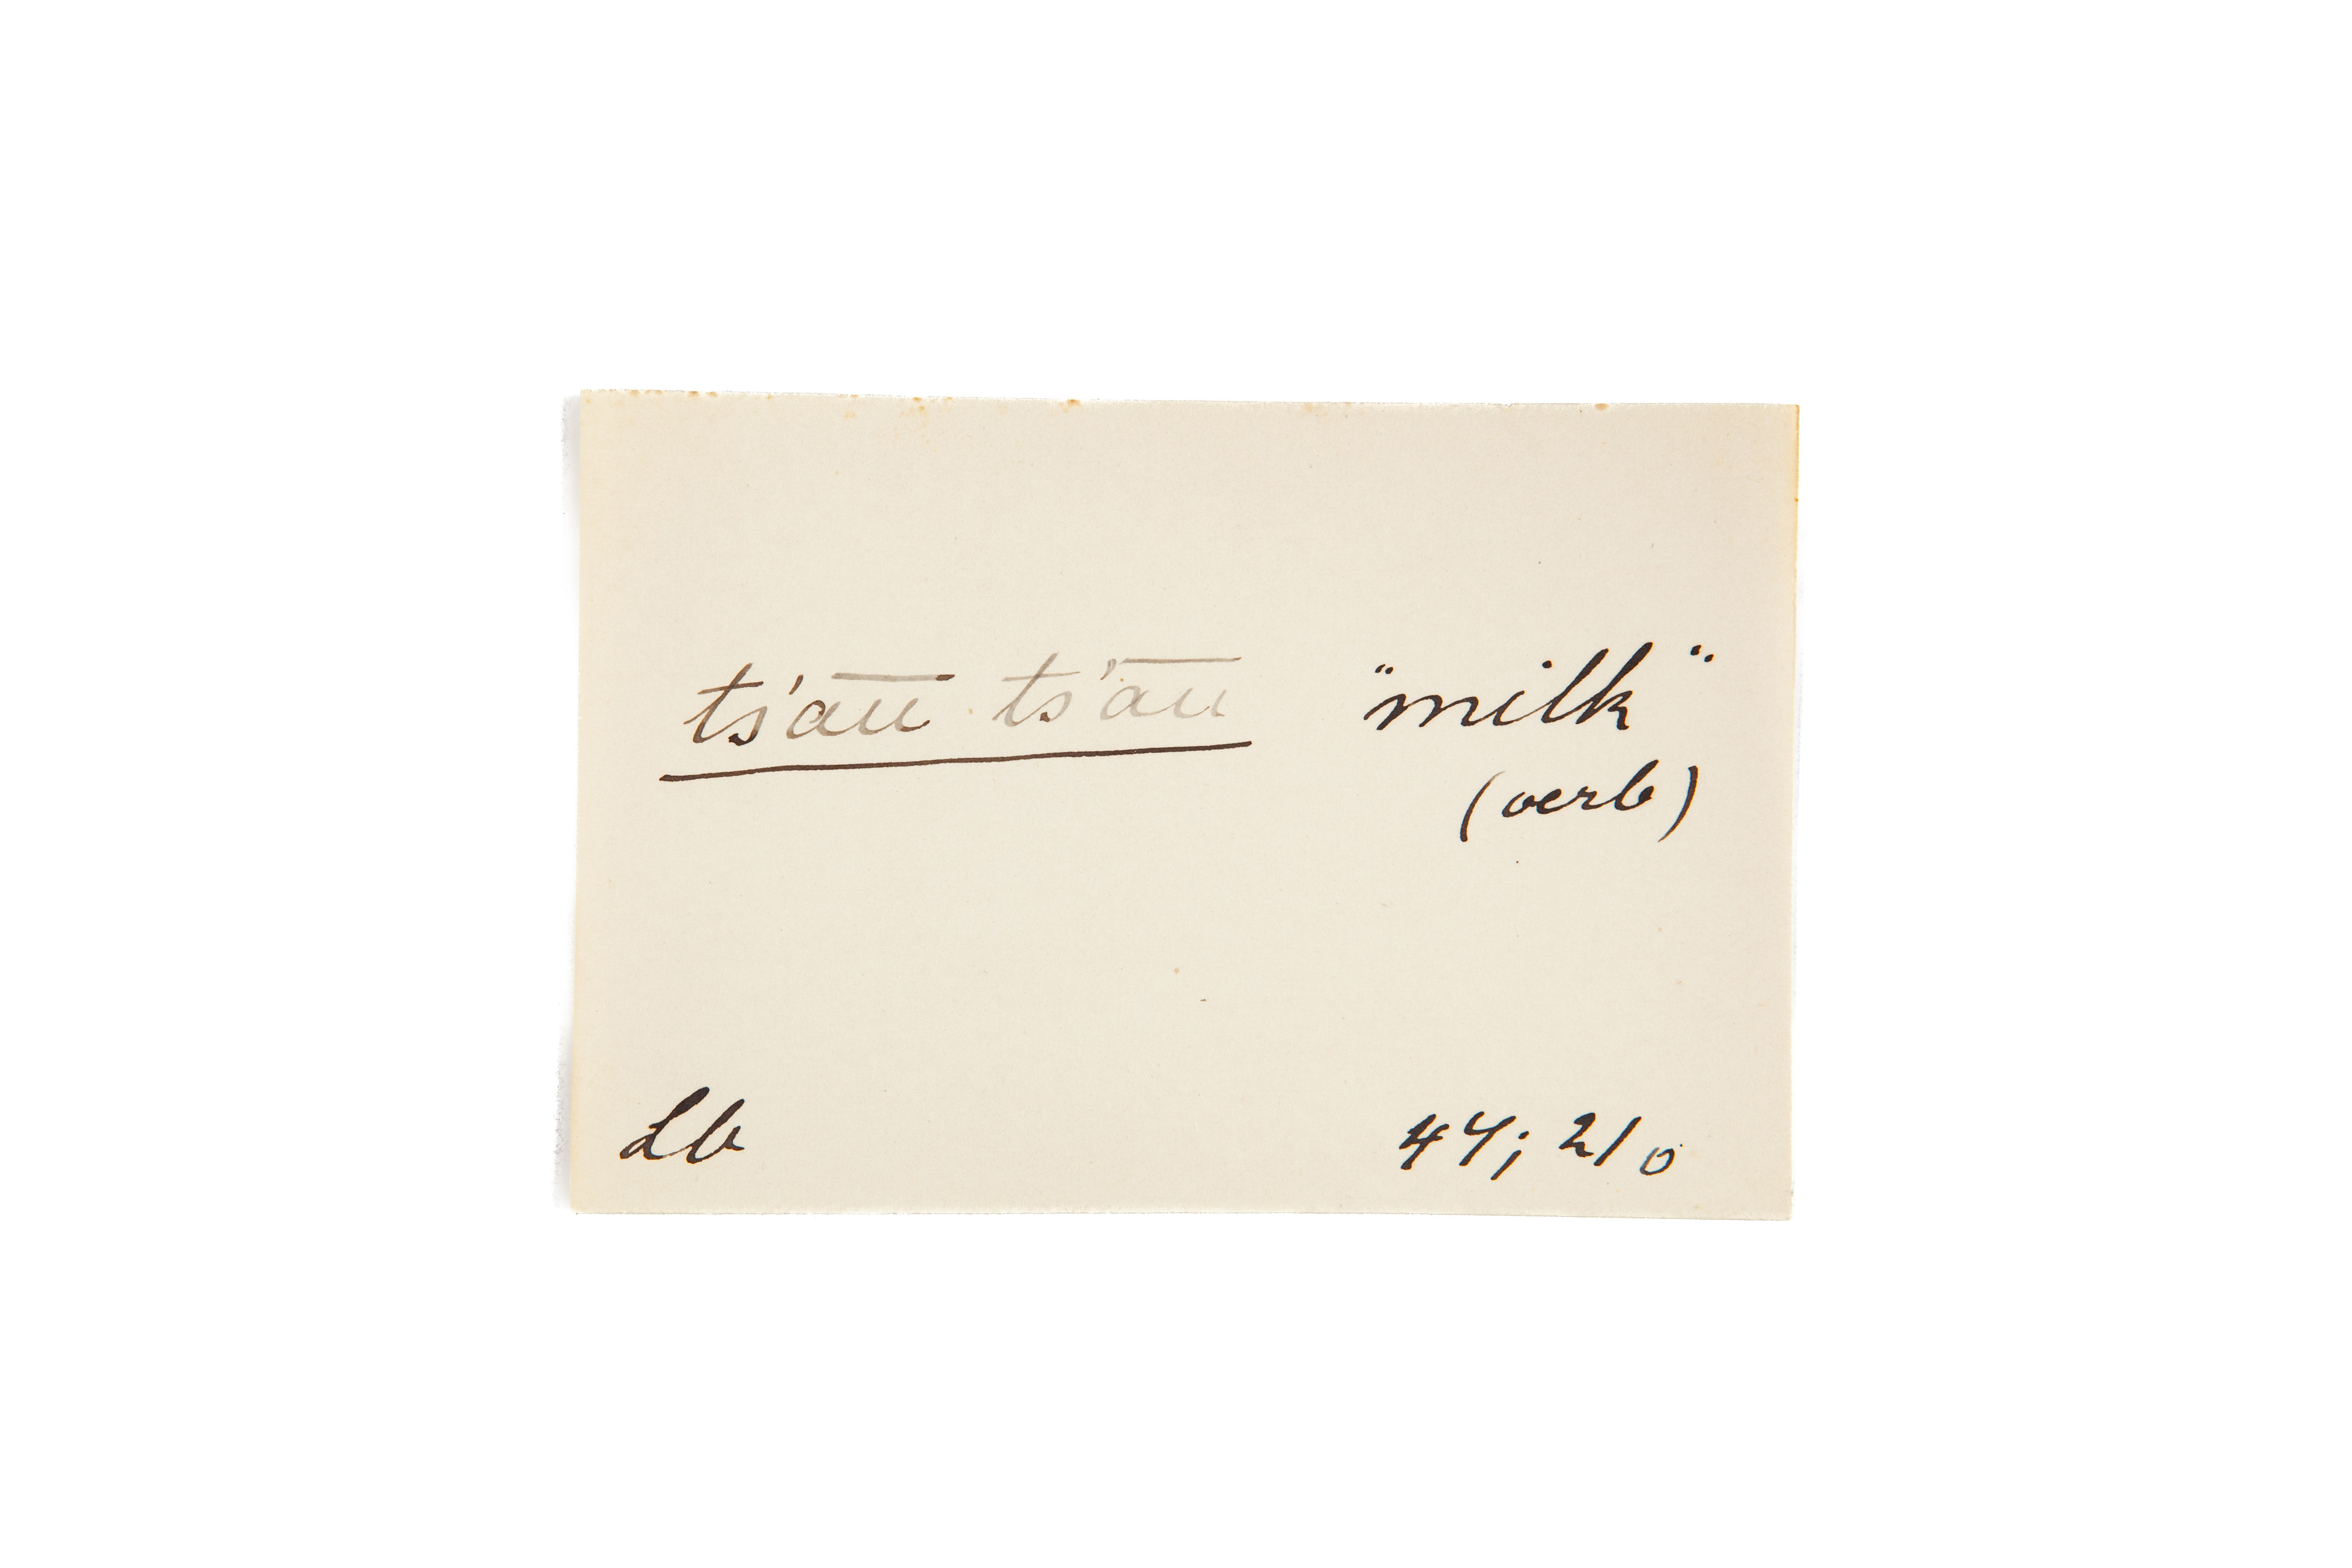 ts'a͞u ts'a͞u "milk"
(verb)
Lb 44; 210